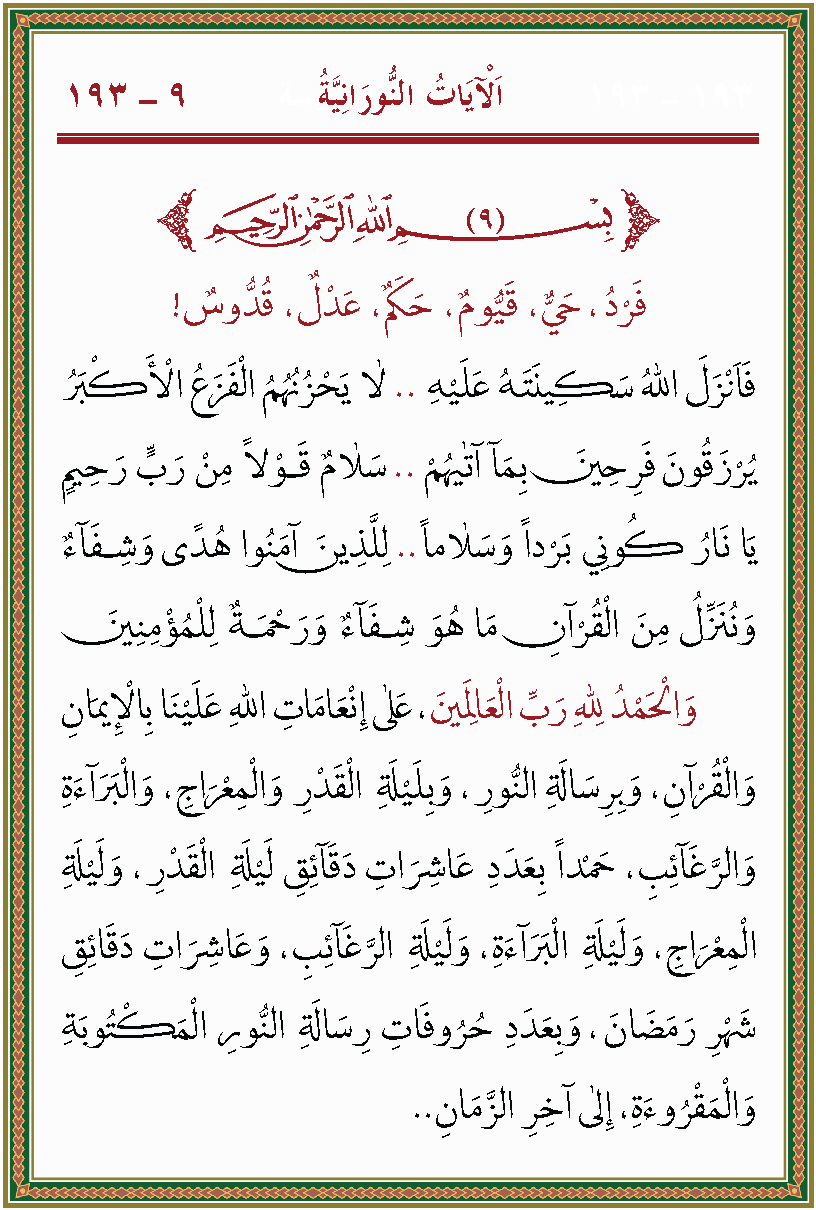 اَلْآيَاتُ النُّورَانِيَّةُ ٩ – ١٩٣
بِسْمِ اللهِ الرَّحْمٰنِ الرَّحِيمِ (٩)
فَرْدُ، حَيٌّ، قَيُّومٌ، حَكَمٌ، عَدْلٌ، قُدُّوسٌ!
فَاَنْزَلَ اللهُ سَكِينَتَهُ عَلَيْهِ .. لاٰ يَحْزُنُهُمُ الْفَزَعُ الْأَكْبَرُ
يُرْزَقُونَ فَرِحِينَ بِمَآ آتٰيهُمْ .. سَلاٰمٌ قَوْلاً مِنْ رَبٍّ رَحِيمٍ
يَا نَارُ كُونِي بَرْداً وَسَلاٰماً .. لِلَّذِينَ آمَنُوا هُدًى وَشِفَآءٌ
وَنُنَزِّلُ مِنَ الْقُرْآنِ مَا هُوَ شِفَآءٌ وَرَحْمَةٌ لِلْمُؤْمِنِينَ
وَالْحَمْدُ لِلهِ رَبِّ الْعَالَمِينَ، عَلٰى إِنْعَامَاتِ اللهِ عَلَيْنَا بِالْإِيمَانِ
وَالْقُرْآنِ، وَبِرِسَالَةِ النُّورِ، وَبِلَيْلَةِ الْقَدْرِ وَالْمِعْرَاجِ، وَالْبَرَآءَةِ
وَالرَّغَآئِبِ، حَمْداً بِعَدَدِ عَاشِرَاتِ دَقَآئِقِ لَيْلَةِ الْقَدْرِ، وَلَيْلَةِ
الْمِعْرَاجِ، وَلَيْلَةِ الْبَرَآءَةِ، وَلَيْلَةِ الرَّغَآئِبِ، وَعَاشِرَاتِ دَقَائِقِ
شَهْرِ رَمَضَانَ، وَبِعَدَدِ حُرُوفَاتِ رِسَالَةِ النُّورِ الْمَكْتُوبَةِ
وَالْمَقْرُوءَةِ، إِلٰى آخِرِ الزَّمَانِ..